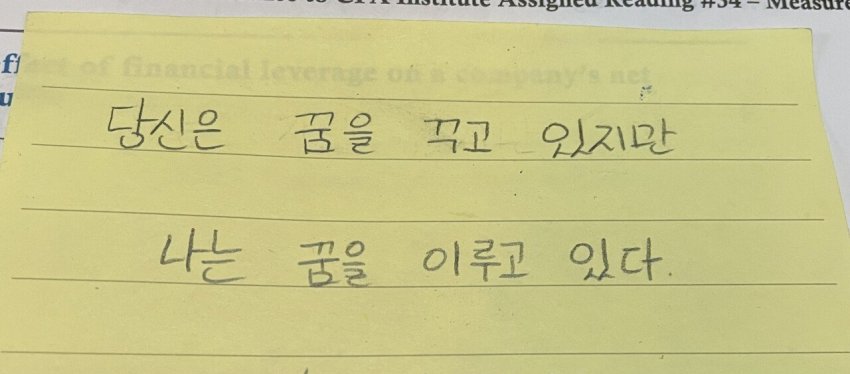 CFA Institute Assigned Reading #34 – Measure
effect of financial leverage on a company's net
당신은 꿈을 꾸고 있지만
나는 꿈을 이루고 있다.